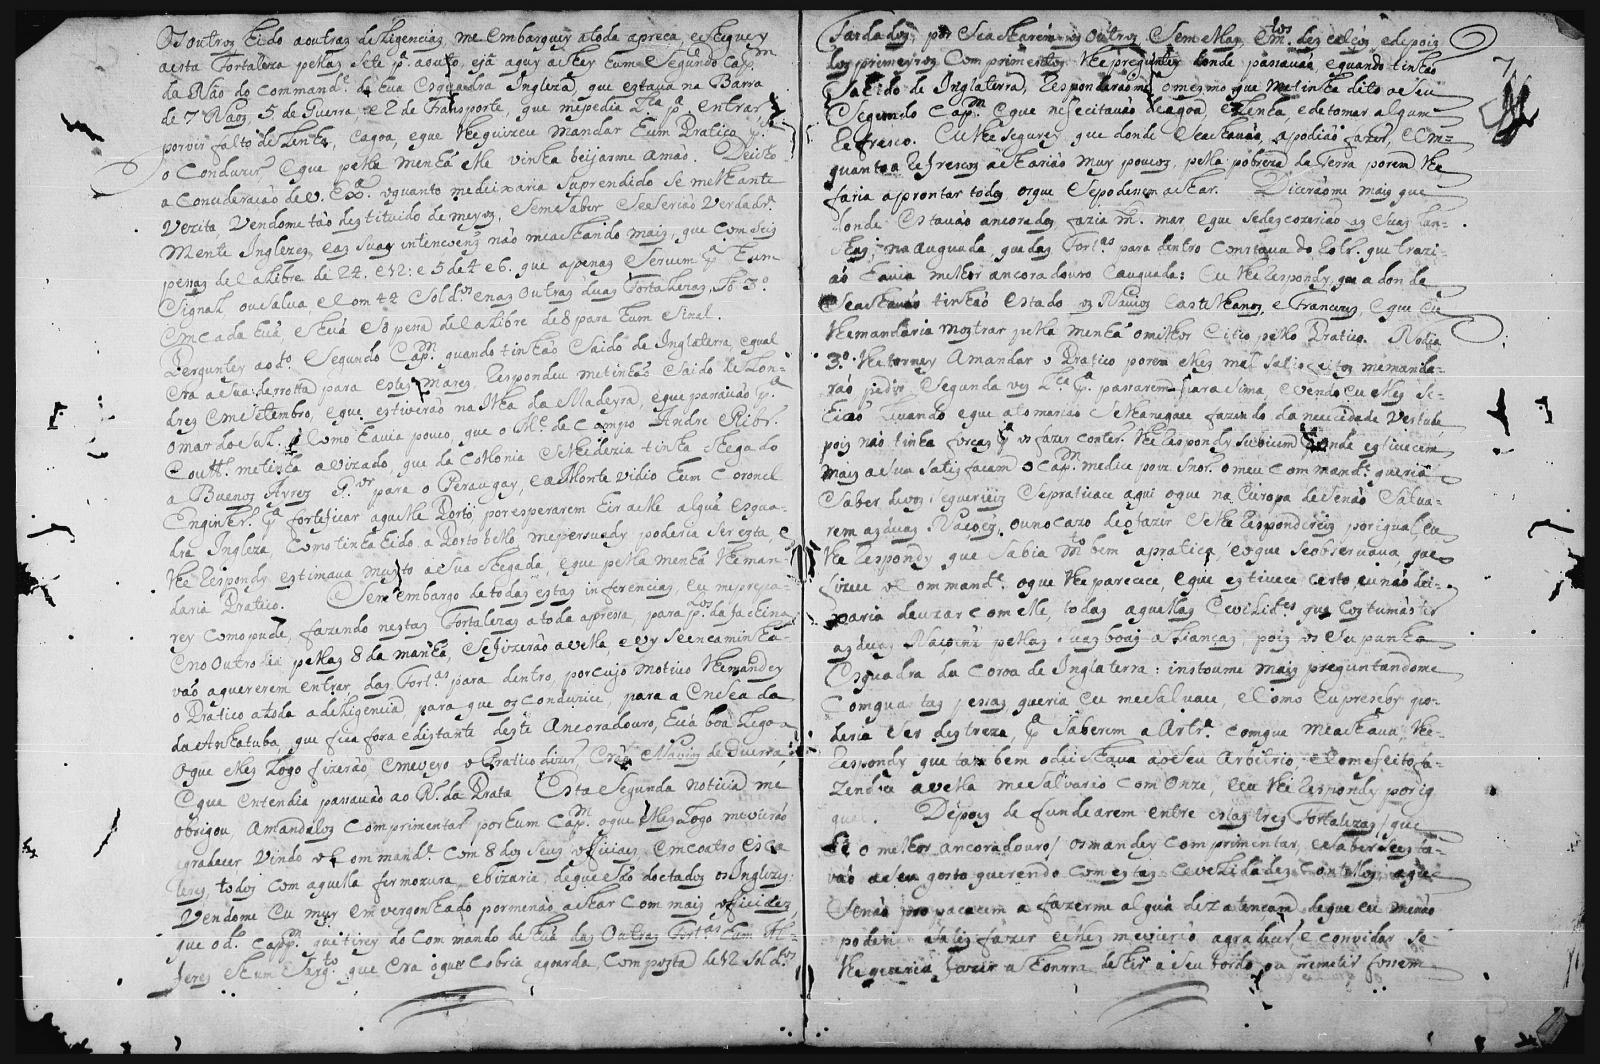 outros hido a outras deligencias, me embarquey a toda apreça e cheguey
a esta Fortaleza pellas sete p.ª a outo, e já aquy achey hum Segundo Cap.m
da Náo do Command.e de hua Esquadra Ingleza, que estava na Barra
de 7 Naos, 5 de Guerra, e 2 de Transporte, que me pedia L.ca p.ª entrar
por vir falto de Lenha, e agoa, e que lhe quizeçe mandar hum Pratico p.ª
o Conduzir, e que pella menhá elle vinha beijarme a mão. Deicho
a Concideração de V. Ex.ª o quanto me deixaria Suprendido Se melhante
Vezita, Vendome tão destituido de meyos, Sem Saber Se Serião Verdadr.ª
mente Inglezes, e as Suas intençoens, não me achando mais, que com Seis
peças de Calibre de 24. e 12: e 5 de 4 e 6. que apenas Servem p.ª hum
Signal, ou Salva, e Com 42 Sold.os e nas Outras duas Fortalezas, So 3.º
em cada huá, e huá Só peça de Calibre de 8 para hum Sinal.
Perguntey ao d.º Segundo Cap.m quando tinhão Saido de Inglaterra, e qual
era a Sua derrotta para estes mares, Respondeu me tinhão Saido de Lon-
dres em Setembro, e que estiverão na Ilha da Madeyra, e que paçavão p.ª
o mar do Sul. Como havia pouco, que o M.e de Campo Andre Ribr.º
Cout.º me tinha avizado, que da Collonia Se lhe dezia tinha chegado
a Buenos Ayres G.or para o Peraugay, e a Monte vidio hum Coronel
Enginhr.º p.ª fortificar aquelle Porto por esperarem hir a elle algúa esqua-
dra Ingleza, Como tinha hido a Porto bello, me persuady poderia Ser esta, e
lhe Respondy estimava muyto a Sua chegada, e que pella menhá lhe man-
daria Pratico. Sem embargo de todas estas inferencias, eu me prepa-
rey como pude, fazendo nestas Fortalezas a toda apreça, para p.os da fachina
e no Outro dia pellas 8 da manhá, Se fizerão a vella, e vy Se encaminha-
vão a quererem entrar das Fort.as para dentro, por cujo motivo lhe mandey
o Pratico a toda a deligencia para que os conduzice, para a Enseada
da Anhatuba, que fica fora e distante deste Ancoradouro, huá boa Legoa
o que elles Logo fizerão, e me veyo o Pratico dizer, Erão Navios de Guerra,
e que entendia passavão ao R. da Prata Esta Segunda noticia me
obrigou, a mandalos Comprimentar por hum Cap.m o que elles Logo me vierão
gradecer vindo o Command.e com 8 dos Seus officiaes, em coatro esca
leres, todos com aquella fermozura, e bizaria, de que São doctados os Inglezes:
Vendome Eu muy em vergonhado por me não achar com mais officiaes,
que o d.º Capp.m que tirey do Commando de huá das Outras Fort.as hum Al-
feres e hum Sarg.to que era o que Cobria aguarda, Composta de 12 Sold.os
7
Fardados, por Se acharem os outros Sem ellas, e m.tos descalços, e depois
dos primeyros Comprimentos lhe preguntey donde passavão, e quando tinhão
Saido de Inglaterra, Responderãome o mesmo que me tinha dito o Seu
Segundo Cap.m e que nesecitavão de agoa, e Lenha, e de tomar algum
Refresco. Eu lhe Segurey, que donde Se achavão, a podião fazer, e em-
quanto a Refrescos acharião muy poucos, pella pobreza da Terra porem lhe
faria aprontar todos os que Se podecem achar. Diceraome mais que
donde Estavão ancorados fazia m.to mar, e que Se descozerião as Suas lan-
chas; na auguada, que das Fort.as para dentro constava do Rotr.º que trazi-
ão havia melhor ancoradouro e auguada: Eu lhe Respondy, que a donde
Se achavão tinhão Estado os Navios Castelhanos, e Francezes, e que Eu
lhe mandaria mostrar pella menhá o milhor Citio pello Pratico. No dia
3.º lhe torney a mandar o Pratico porem elles mal Satisfeitos me manda-
rão pedir, Segunda vez L.ca p.ª passarem para Sima, e vendo Eu elles Se
hião Levando e que a tomarião Se lha negace fazendo da necicidade Vertude,
pois não tinha forças p.ª os fazer conter. lhe Respondy Subicem donde estivecem
mais a Sua Satisfaçam o Cap.m me dice pois Snor. o meu Command.e queria
Saber de vos, Se quereis Se praticace aqui o que na Europa de Senão Salva-
rem as duas Naçoes, ou no cazo de o fazer Se lhe Respondereis por igual, eu
lhe Respondy que Sabia m.to bem a pratica, e o que Se observava, que
fizece o Command.e o que lhe parecece, e que estivece certo eu não dei-
xaria de uzar com elle, todas aquellas Civilid.es que Costumão ter
as duas Naçoins pellas Suas boas alianças, pois os Reputava
Esquadra da Coroa de Inglaterra: instoume mais preguntandome
Com quantas pessas queria eu me Salvace, e Como Eu percebi que-
deria Ser destreza, p.ª Saberem a Artr.ª com que me achava lhe
Respondy que tambem o deichava ao Seu Arbitrio, e Com efeito fa-
zendo a vella me Salvarão com Onze, e eu lhe Respondy por ig
qual. Depois de fundearem entre estas tres Fortalezas, que
he o melhor ancoradouro, os mandey comprimentar, e Saber Se esta-
vão a Seu gosto querendo com estas Cevelidades contellos, a que
Senão propaçacem a fazerme algúa dezatençam de que eu me não
poderia Satisfazer elles me vierão, agradecer, e convidar Se
lhe queria fazer a honrra de hir a Seu bordo, ou remetir fossem